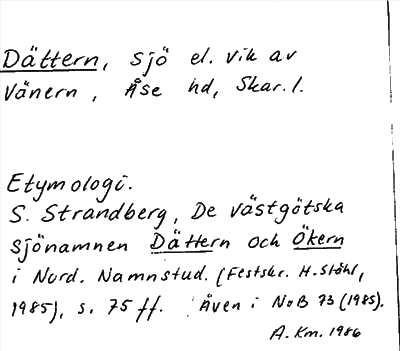 Dättern, sjö el. vik av
Vänern, Åse hd, Skar. l.
Etymologi.
S. Strandberg, De västgötska
sjönamnen Dättern och Ökern
i Nord. Namnstud. (Festskr. H. Ståhl,
1985), s. 75 ff. Även i NoB 73 (1985).
A. Km. 1986